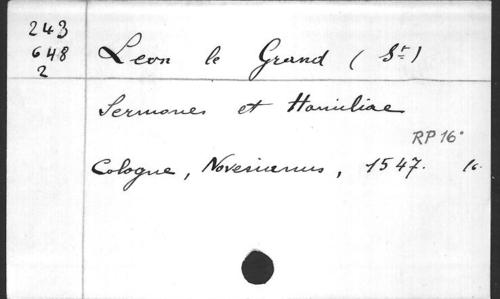 243
648
2
Leon le Grand (St)
Sermones et Homiliae
RP 16°
Cologne, Novesianus, 1547. 16.